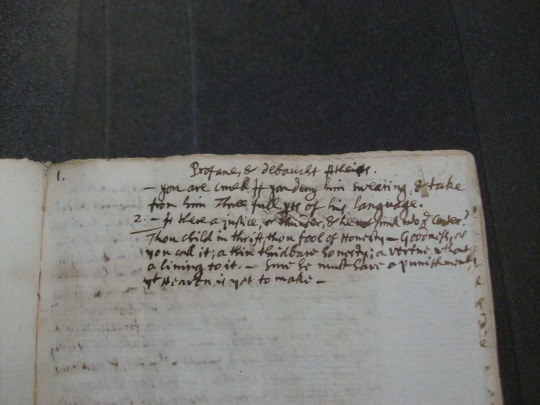 1. Profane, & debaucht Atheists.
— you are cruell If you deny him swearing, & take
from him Three full pts of his language.
2. — Is there a justice, or thunder, & hee not sink into ye Center?
Thou child in thrift, thou fool of Honesty — Goodnesse, as
you call it; a thin thridbare honesty; a vertue without
a living to it. — Sure he must have a punishment
yt Heaven is yet to make —